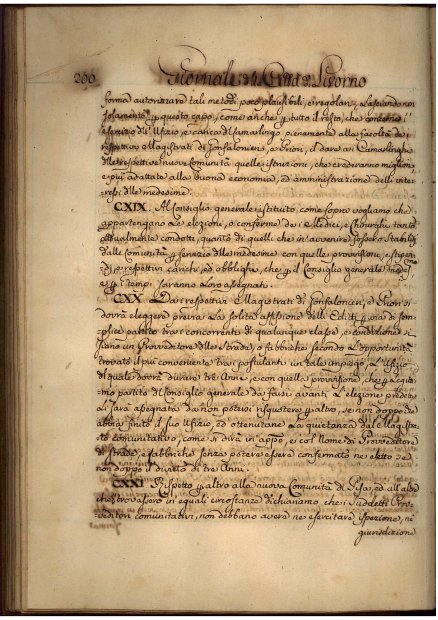 266 Giornale della Città di Livorno
forma autorizzare tali metodi poco plausibili, e regolari, Lasciando non
solamente p questo capo, come anche p tutto il resto, che concerne l'
esercizio dell'Ufizio, e carica di Camarlingo pienamente alla facoltà de i
respettivi Magistrati di Gonfaloniere, e Priori, il dare ai Camarlinghi
delle respettive nuove Comunità quelle istruzioni, che crederanno migliori,
e più adattate alla buona economia, ed amministrazione delli inte-
ressi delle medesime.
CXIX. Al Consiglio generale istituito come sopra vogliamo che
appartengano Le elezioni, o conferme de i Medici, e Chirurghi tanto
attualmente condotti, quanto di quelli che in avvenire fossero stabiliti
dalle Comunità p servizio delle medesime con quelle provvisioni, e stipen-
dj, e respettivi carichi, ed obblighi, che p il Consiglio generale
e p i tempi saranno Loro assegnati.
CXX. Dai respettivi Magistrati di Gonfalonieri, e Priori si
dovrà eleggere previa La solita affissione delli Editti p via di sem-
plice partito trai concorrenti di qualunque classe, e condizione si
siano un Provveditore delle Strade, o fabbriche secondo L'opportunità
trovato il più conveniente trai postulanti un tale impiego, L'Ufizio
di quale dovrà durare tre Anni, e con quella provvisione, che p Legitti-
mo partito del Consiglio generale da farsi avanti L'elezione predetta
Li sarà assegnata da non potersi risquotere p altro, se non doppo che
abbia finito il suo Ufizio, ed ottenutane La quietanza dal Magistra-
to comunitativo, come si dirà in appo, e col nome di Provveditore
di Strade, e fabbriche senza potere essere confermato ne eletto se
non doppo il divieto di tre Anni.
CXXI. Rispetto p altro alla nuova Comunità di Pisa, ed all'altre
che si trovassero in eguali circostanze dichiariamo che i suddetti Prov-
veditori comunitativi, non debbano avere ne esercitare ispezione, ne
giurisdizione